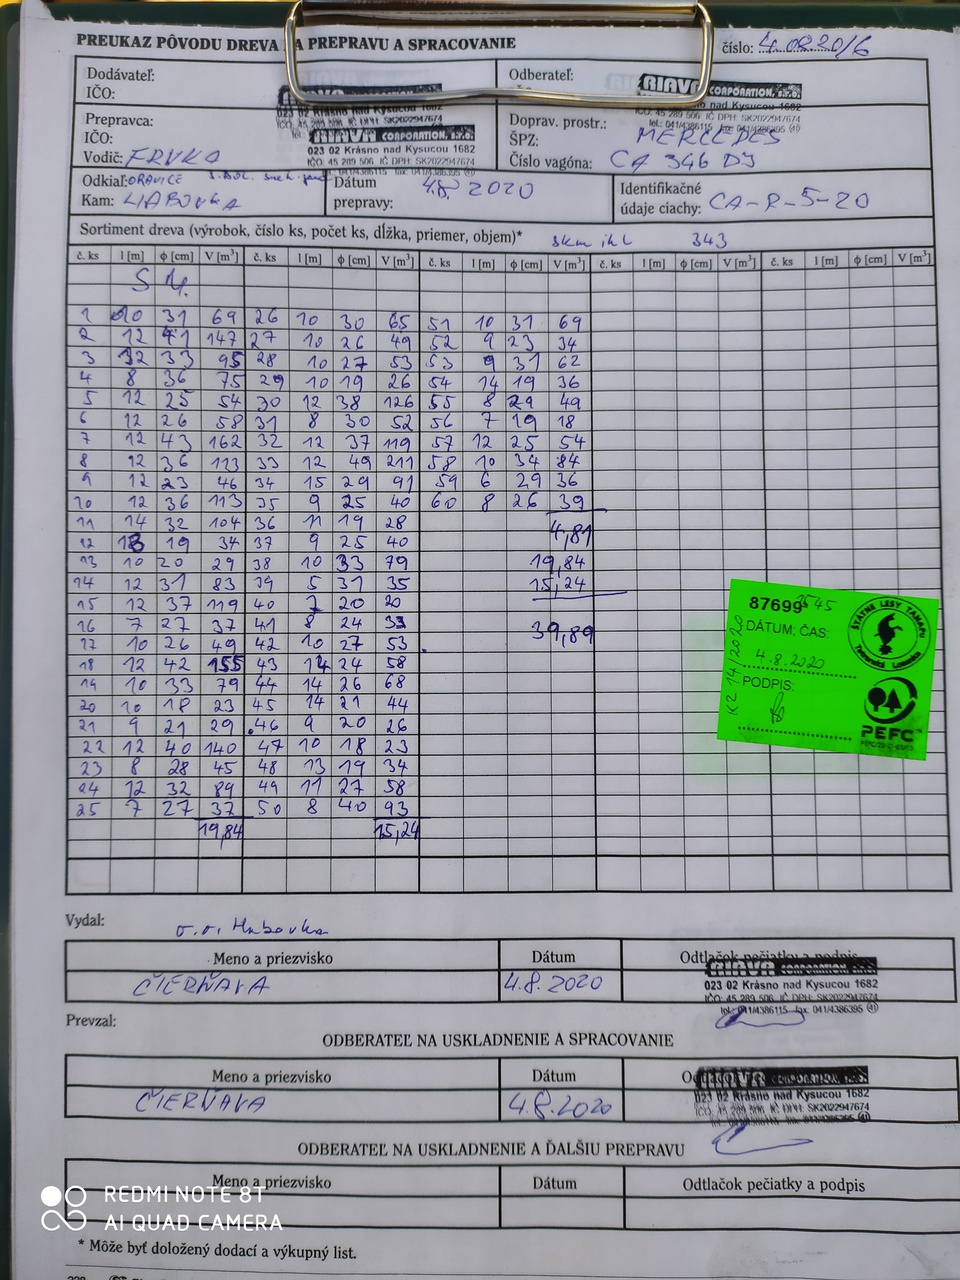 PREUKAZ PÔVODU DREVA NA PREPRAVU A SPRACOVANIE
číslo: 4.082016
Dodávateľ:
IČO:
Odberateľ:
RIAVA CORPORATION, s.r.o.
023 02 Krásno nad Kysucou 1682
Prepravca:
IČO:
RIAVA CORPORATION, s.r.o.
023 02 Krásno nad Kysucou 1682
IČO: 45 289 506 IČ DPH: SK2022947674
Vodič: FRVKA
Doprav. prostr.: MERCEDES
ŠPZ:
Číslo vagóna: CA 346 DJ
Odkiaľ: ORAVICE
Kam:
Dátum prepravy: 4.8. 2020
Identifikačné údaje ciachy: CA-R-5-20
Sortiment dreva (výrobok, číslo ks, počet ks, dĺžka, priemer, objem)* 343
č. ks l [m] ϕ [cm] V [m³] č. ks l [m] ϕ [cm] V [m³] č. ks l [m] ϕ [cm] V [m³] č. ks l [m] ϕ [cm] V [m³] č. ks l [m] ϕ [cm] V [m³]
S M.
1 10 31 69 26 10 30 65 51 10 31 69
2 12 41 147 27 10 26 49 52 9 23 34
3 12 33 95 28 10 27 53 53 9 31 62
4 8 36 75 29 10 19 26 54 14 19 36
5 12 25 54 30 12 38 126 55 8 29 49
6 12 26 58 31 8 30 52 56 7 19 18
7 12 43 162 32 12 37 119 57 12 25 54
8 12 36 113 33 12 49 211 58 10 34 84
9 12 23 46 34 15 29 91 59 6 29 36
10 12 36 113 35 9 25 40 60 8 26 39
11 14 32 104 36 11 19 28 4,81
12 13 19 34 37 9 25 40
13 10 20 29 38 10 33 79 19,84
14 12 31 83 39 5 31 35 15,24
15 12 37 119 40 7 20 20
16 7 27 37 41 8 24 33 39,89
17 10 26 49 42 10 27 53
18 12 42 155 43 14 24 58
19 10 33 79 44 14 26 68
20 10 18 23 45 14 21 44
21 9 21 29 46 9 20 26
22 12 40 140 47 10 18 23
23 8 28 45 48 13 19 34
24 12 32 89 49 11 27 58
25 7 27 37 50 8 40 93
19,84 15,24
87699 2545
DÁTUM; ČAS:
4.8.2020
PODPIS:
KZ 14/2020
ŠTÁTNE LESY TANAPU
Tatranská Lomnica
PEFC
Vydal:
Meno a priezvisko Dátum Odtlačok pečiatky a podpis
ČIERŇAVA 4.8.2020
RIAVA CORPORATION, s.r.o.
023 02 Krásno nad Kysucou 1682
IČO: 45 289 506 IČ DPH: SK2022947674
tel.: 041/4386115 fax: 041/4386395 (41)
Prevzal:
ODBERATEĽ NA USKLADNENIE A SPRACOVANIE
Meno a priezvisko Dátum
ČIERŇAVA 4.8.2020
RIAVA CORPORATION, s.r.o.
023 02 Krásno nad Kysucou 1682
IČO: 45 289 506 IČ DPH: SK2022947674
ODBERATEĽ NA USKLADNENIE A ĎALŠIU PREPRAVU
Meno a priezvisko Dátum Odtlačok pečiatky a podpis
* Môže byť doložený dodací a výkupný list.
REDMI NOTE 8T
AI QUAD CAMERA